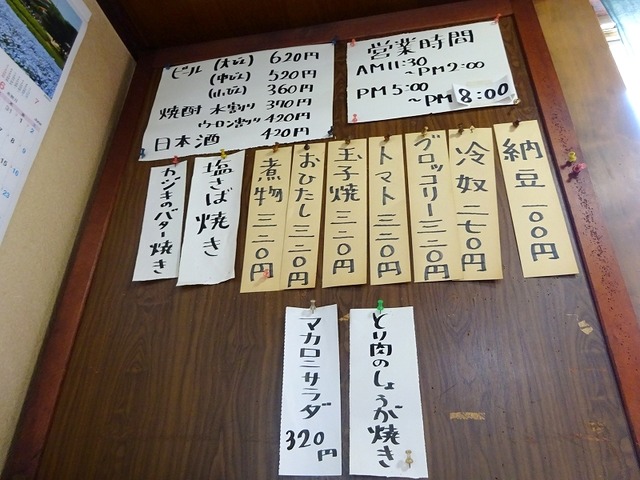 ビール (大ビン) 620円
(中ビン) 520円
(小ビン) 360円
焼酎 水割り 390円
ウーロン割り 420円
日本酒 420円
営業時間
AM11:30
～PM2:00
PM5:00
～PM8:00
納豆 一〇〇円
冷奴 二七〇円
ブロッコリー 三二〇円
トマト 三二〇円
玉子焼 三二〇円
おひたし 三二〇円
煮物 三二〇円
塩さば焼き
カジキのバター焼き
とり肉のしょうが焼き
マカロニサラダ 320円